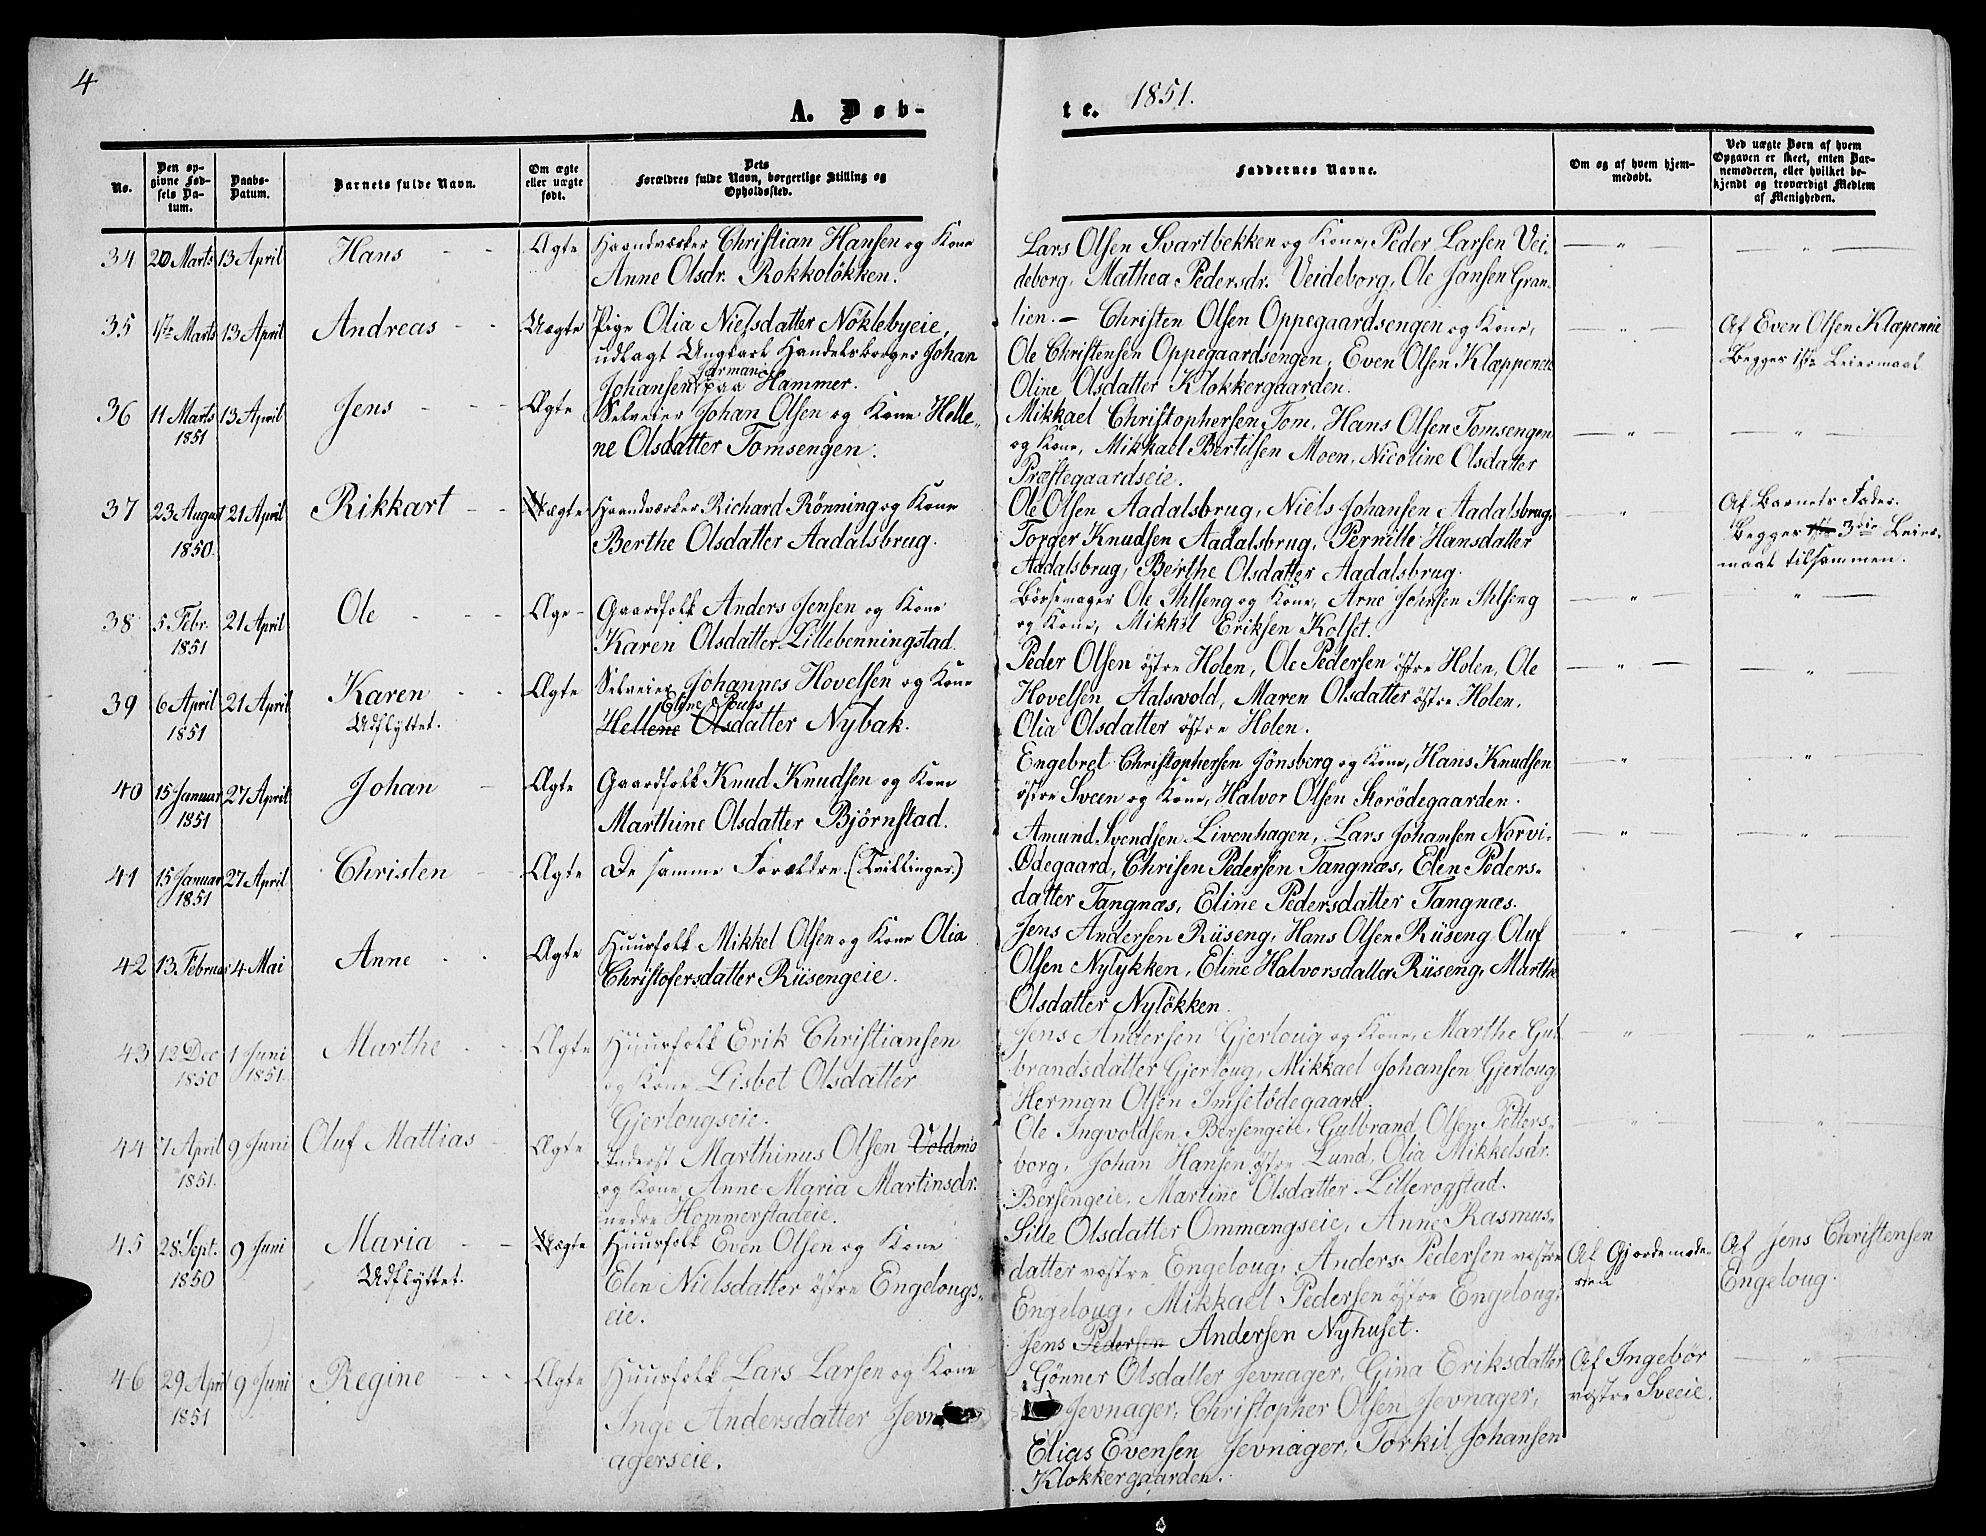 4
A. Døb-
te. 1851.
No.
Den op-
givne Fød-
sels Da-
tum.
Daabs-
Datum.
Barnets fulde Navn.
Om ægte
eller uægte
født.
Dets
Forældres fulde Navn, borgerlige Stilling og
Opholdssted.
Faddernes Navne.
Om og af hvem hjem-
medøbt.
Ved uægte Børn af hvem
Opgaven er skeet, enten Bar-
nemoderen, eller hvilket be-
kjendt og troværdigt Medlem
af Menigheden.
34 20 Marts 13 April Hans Ægte Haandværker Christian Hansen og Kone
Anne Olsdr. Rokkoløkken.
Lars Olsen Svartbekken og Kone, Peder Larsen Vei-
deborg, Mathea Pedersdr. Veideborg, Ole Jansen Gran-
lien.
35 Marts 13 April Andreas Uægte Pige Olia Nielsdatter Nöklebyeie,
udlagt Ungkarl Handelsborger Johan
Johansen paa Hammer.
Christen Olsen Oppegaardsengen og Kone,
Ole Christensen Oppegaardsengen, Even Olsen Klæppeneie
Oline Olsdatter Klokkergaarden.
Af Even Olsen Klæpeneie
Begges 1ste Leiermaal
36 11 Marts 13 April Jens Ægte Selveier Johan Olsen og Kone Helle-
1851
ne Olsdatter Tomsengen.
Mikkael Christophersen Tom, Hans Olsen Tomsengen
og Kone, Mikkael Bertilsen Moen, Nicoline Olsdatter
Præstegaardseie.
37 23 August 21 April Rikkart Uægte Haandværker Richard Rönning og Kone
1850.
Berthe Olsdatter Aadalsbrug.
Ole Olsen Aadalsbrug, Niels Johansen Aadalsbrug,
Torger Knudsen Aadalsbrug, Pernille Hansdatter
Aadalsbrug, Berthe Olsdatter Aadalsbrug.
Af Barnets Fader.
Begges 3die Leier-
maal tilsammen.
38 5 Febr. 21 April Ole Æge Gaardfolk Anders Jensen og Kone
1851
Karen Olsdatter Lillebenningstad.
Börsemager Ole og Kone, Arne Johnsen
og Kone, Mikkel Eriksen Kolset.
39 6 April 21 April Karen Ægte Selveier Johannes Hovelsen og Kone
1851
Udflyttet.
Eline Pouls
Hellene Olsdatter Nybak.
Peder Olsen östre Holen, Ole Pedersen östre Holen, Ole
Hovelsen Aalsvold, Maren Olsdatter östre Holen,
Olia Olsdatter östre Holen.
40 15 Januar 27 April Johan Ægte Gaardfolk Knud Knudsen og Kone
1851
Marthine Olsdatter Björnstad.
Engebret Christophersen Jönsberg og Kone, Hans Knudsen
östre Sveen og Kone, Halvor Olsen Storödegaarden.
41 15 Januar 27 April Christen Ægte De samme Forældre (Tvillinger)
1851
Amund Svendsen Livenhagen, Lars Johansen Norvi-
Ödegaard, Chrisen Pedersen Tangnæs, Elen Peders-
datter Tangnæs, Eline Pedersdatter Tangnæs.
42 13 Februar 4 Mai Anne Ægte Huusfolk Mikkel Olsen og Kone Olia
Christofersdatter Riisengeie.
Jens Andersen Riiseng, Hans Olsen Riiseng Oluf
Olsen Nylykken, Eline Halvorsdatter Riiseng, Marthe
Olsdatter Nyløkken.
43 12 Dec 1 Juni Marthe Ægte Huusfolk Erik Christiansen
1850 1851.
og Kone Lisbet Olsdatter
Gjerlougseie.
Jens Andersen Gjerloug og Kone, Marthe Gul
brandsdatter Gjerloug, Mikkael Johansen Gjerloug
Herman Olsen Imsetödegaard.
44 7 April 9 Juni Oluf Mattias Ægte Inderst Marthinus Olsen Voldmo
1851.
og Kone Anne Maria Martinsdr.
nedre Hommerstadeie.
Ole Ingvoldsen Bersengeie, Gulbrand Olsen Petters-
borg, Johan Hansen östre Lund, Olia Mikkelsdr.
Bersengeie, Martine Olsdatter Lillerogstad.
45 28 Sept. 9 Juni Maria Uægte Huusfolk Even Olsen og Kone
1850
Udflyttet.
Elen Nielsdatter östre Engelougs-
eie.
Sille Olsdatter Ommangseie, Anne Rasmus-
datter vestre Engeloug, Anders Pedersen vestre
Engeloug, Mikkael Pedersen östre Engeloug,
Jens Pedersen Andersen Nyhuset.
Af Gjordemode-
ren
Af Jens Christensen
Engeloug.
46 29 April 9 Juni Regine Ægte Huusfolk Lars Larsen og Kone
1851
Inge Andersdatter Jevn
agerseie.
Gönner Olsdatter Jevnager, Gina Eriksdatter
Jevnager, Christopher Olsen Jevnager,
Elias Evensen Jevnager, Torkil Johansen
Klokkergaarden.
Af Ingebör
vestre Sveeie.